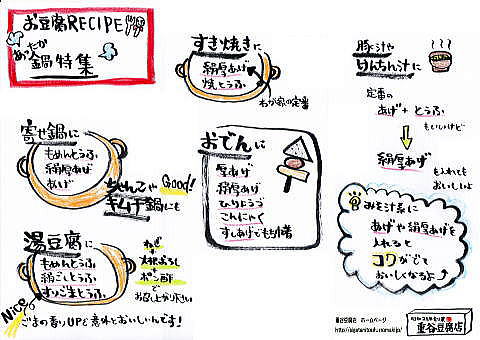 お豆腐RECIPE
あったか
鍋特集
すき焼きに
絹厚あげ
焼とうふ
わが家の定番
豚汁や
けんちん汁に
定番の
あげ + とうふ
もいいけど
絹厚あげ
も入れても
おいしいよ
寄せ鍋に
もめんとうふ
絹厚あげ
あげ
ちゃんこや
キムチ鍋にも
Good!
おでんに
厚あげ
絹厚あげ
ひりょうづ
こんにゃく
すしあげでもち巾着
湯豆腐に
もめんとうふ
絹ごしとうふ
すりごまとうふ
ねぎ
+
大根おろし
+
ポン酢
でお召し上がり下さい
Nice
ごまの香りUPで意外とおいしいんです!
みそ汁系に
あげや絹厚あげを
入れると
コクがでて
おいしくなるよ
重谷豆腐店 ホームページ
重谷豆腐店